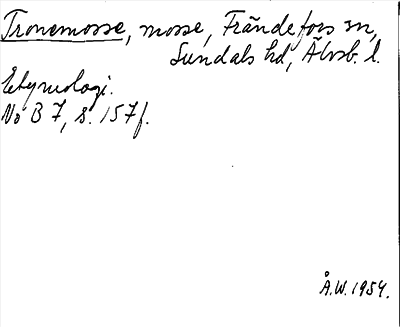 Tronemosse, mosse, Frändefors sn,
Sundals hd, Älvsb. l.
Etymologi.
No B 7, s. 157f.
Å.W. 1954.